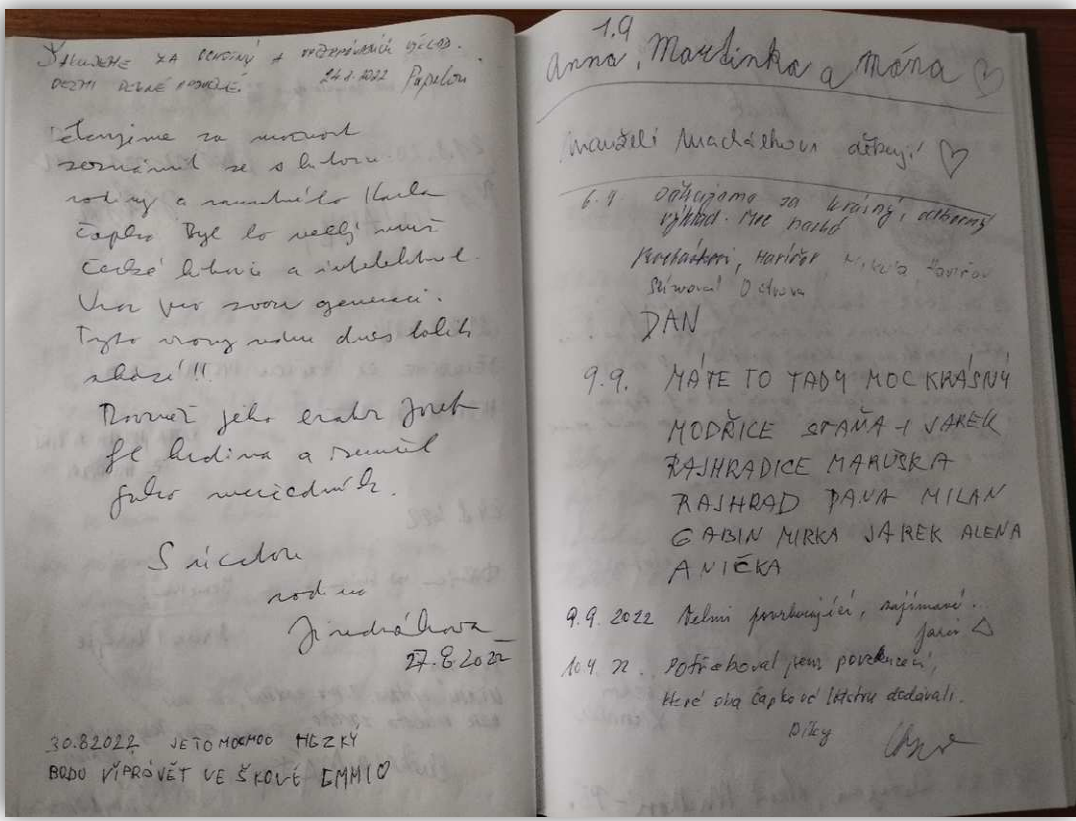 DĚKUJEME ZA VÝKLAD.
24.8.2022
Děkujeme za možnost
seznámit se s
rodiny a samotného Karla
Čapka Byl to velký muž
České a intelektuel.
Vzor pro svou generaci.
Tyto vzory nám dnes tolik
schází!!
Rovněž jeho bratr Josef
byl hrdina a zemřel
jako mučedník.
S úctou
rodina
Jindráčkova
27.8.2022
30.82022 JETO MOCMOC HEZKÝ
BODU VIPRÁVĚT VE ŠKOLE EMMI
1.9
Anna, Martinka a Mána
manželé Macháčkovi děkují!
6.9. Děkujeme za krásný, odborný
výklad. Moc hezké
Havířov
Ostrava
DAN
9.9. MÁTE TO TADY MOC KRÁSNÝ
MODŘICE STAŇA I JAREK
RAJHRADICE MARUŠKA
RAJHRAD DANA MILAN
GABIN MIRKA JAREK ALENA
ANIČKA
9.9.2022 Velmi povzbuzující, zajímavé...
22. Potřeboval jsem povzbuzení,
které oba Čapkové dodávali.
Díky